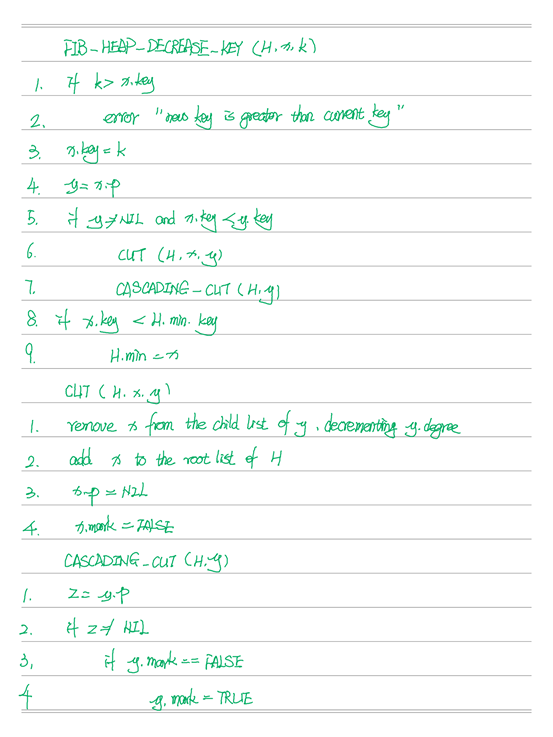 FIB-HEAP-DECREASE-KEY (H, x, k)
1. if k > x.key
2. error "new key is greater than current key"
3. x.key = k
4. y = x.p
5. if y ≠ NIL and x.key < y.key
6. CUT (H, x, y)
7. CASCADING-CUT (H, y)
8. if x.key < H.min.key
9. H.min = x
CUT (H, x, y)
1. remove x from the child list of y, decrementing y.degree
2. add x to the root list of H
3. x.p = NIL
4. x.mark = FALSE
CASCADING-CUT (H, y)
1. z = y.p
2. if z ≠ NIL
3, if y.mark == FALSE
4 y.mark = TRUE